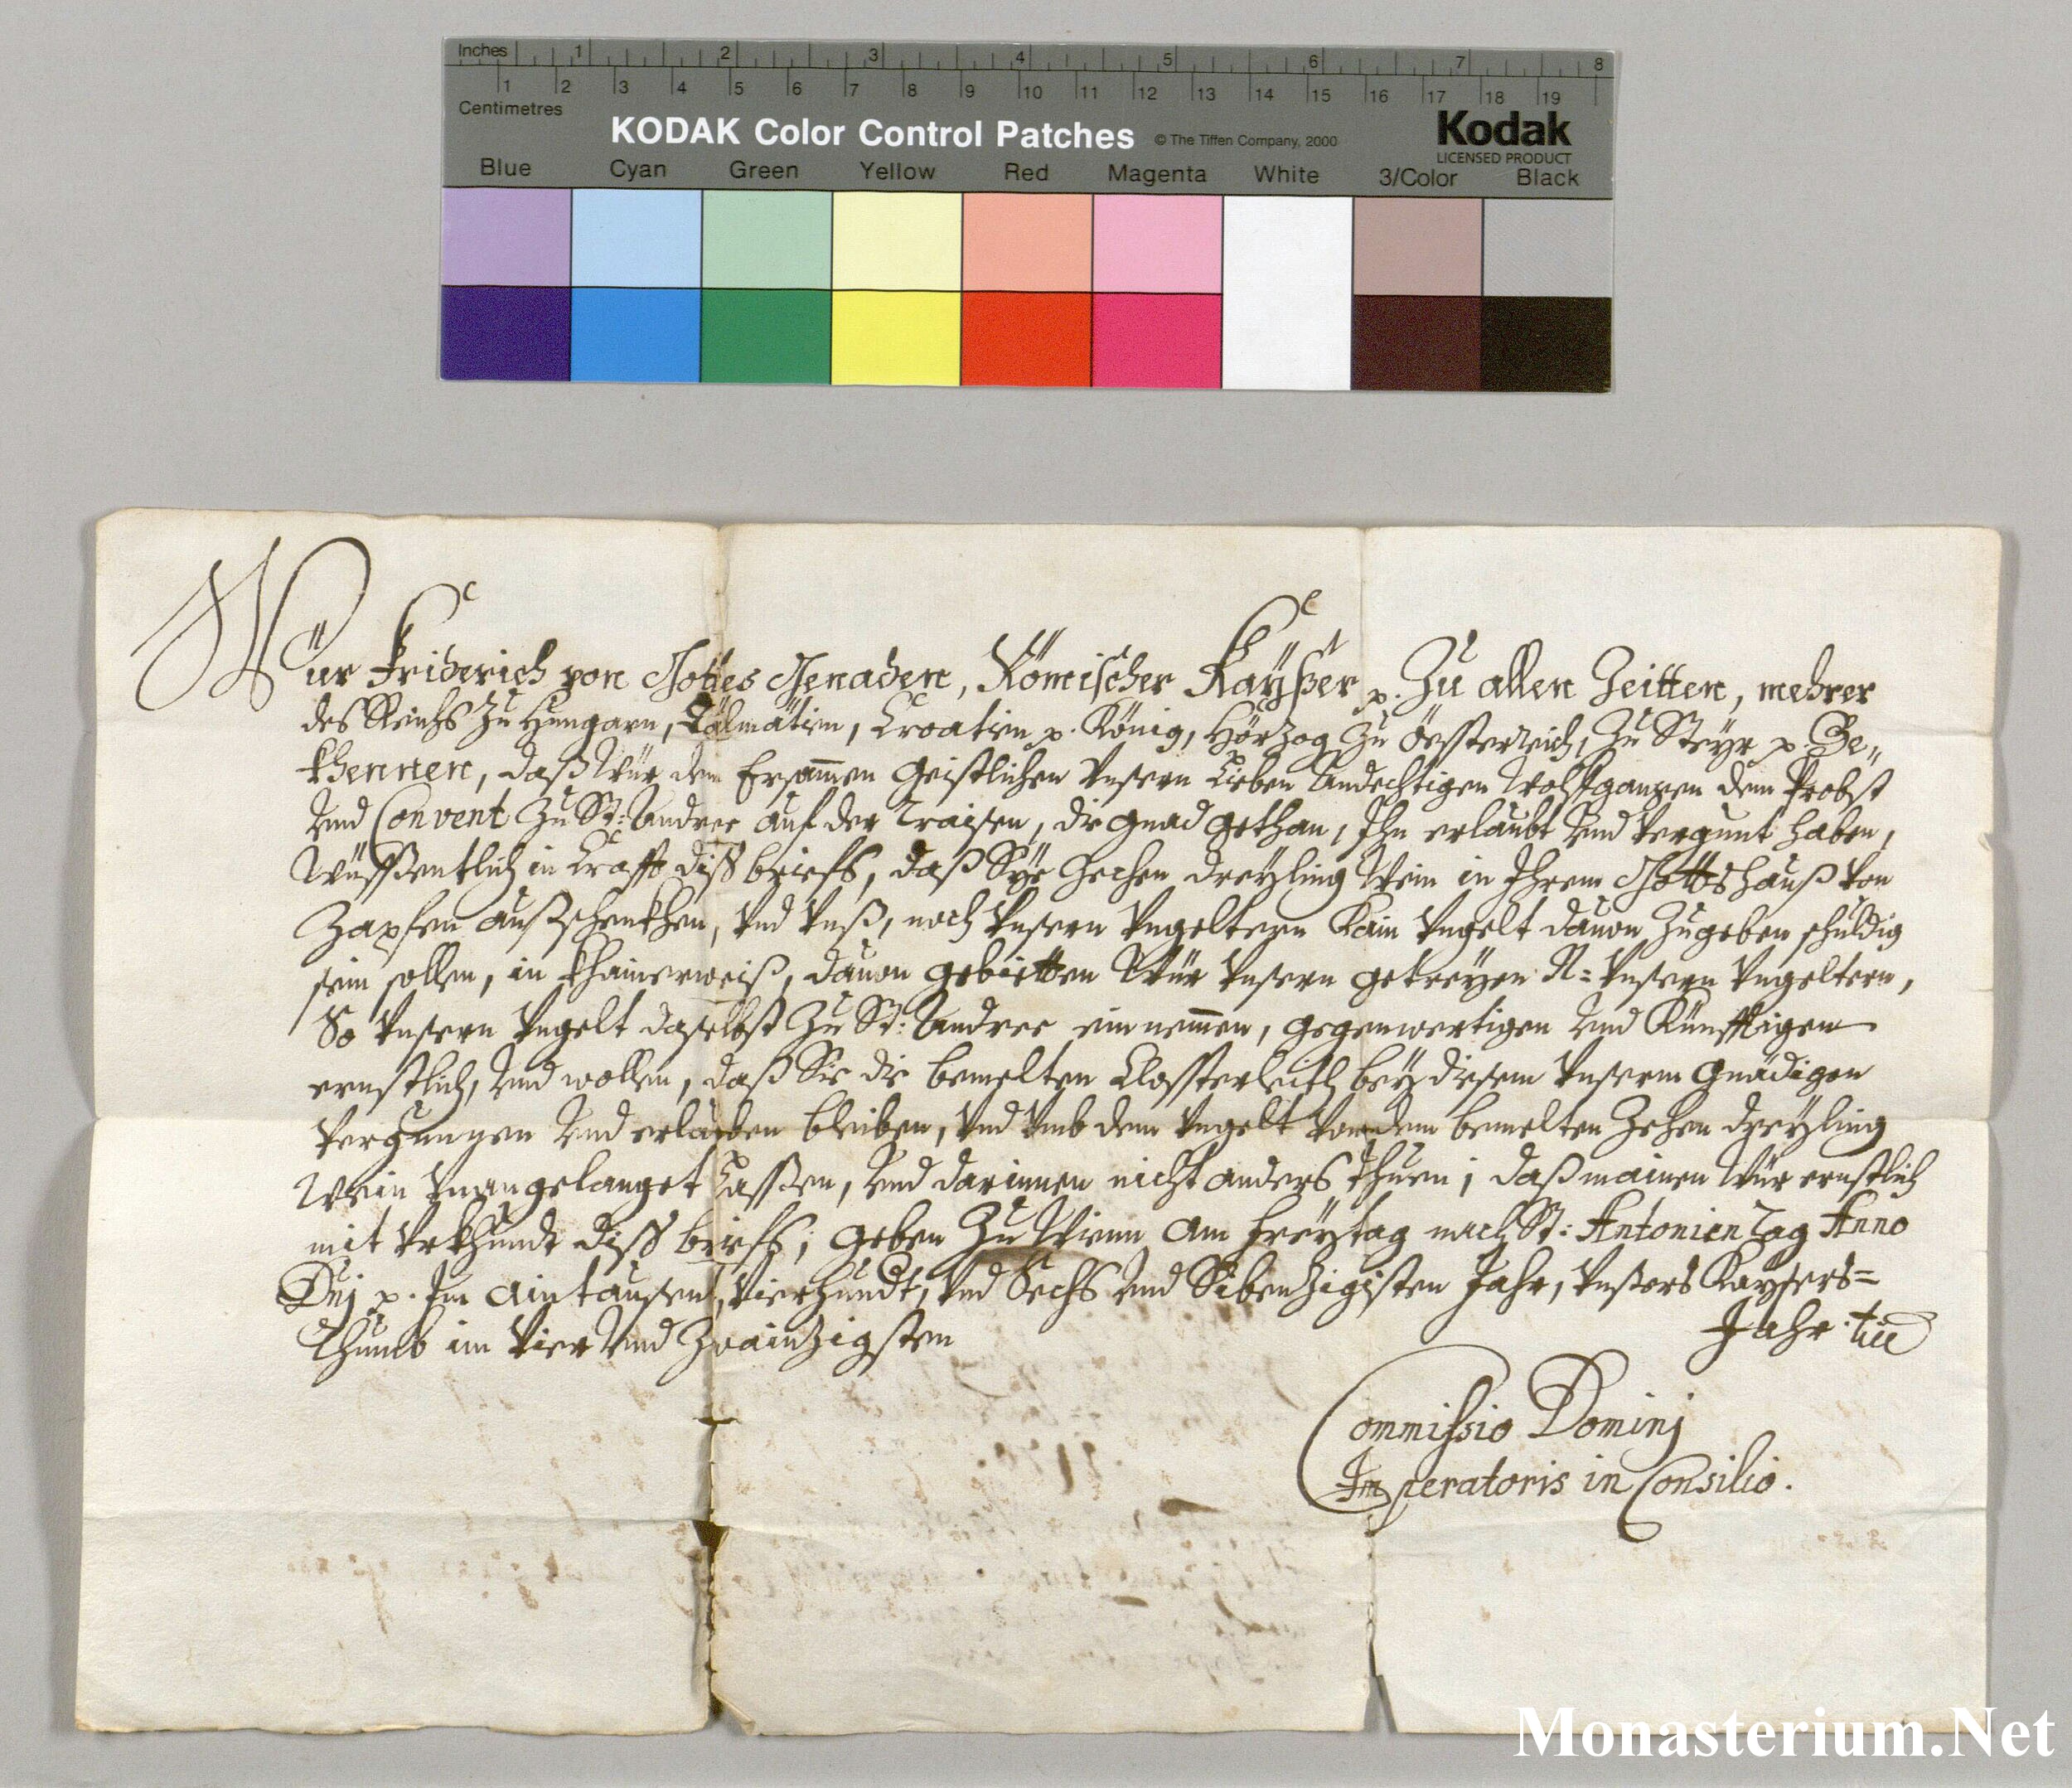 Inches 1 2 3 4 5 6 7 8
1 2 3 4 5 6 7 8 9 10 11 12 13 14 15 16 17 18 19
Centimetres
KODAK Color Control Patches © The Tiffen Company, 2000 Kodak
LICENSED PRODUCT
Blue Cyan Green Yellow Red Magenta White 3/Color Black
Wür Friderich von Gottes Genaden, Römischer Kaÿßer p. Zu allen Zeitten, mehrer
des Reichs Zu Hungarn, Dalmätien, Croatien p. König, Hörzog Zu Öesterreich, Zu Steÿr p. Be„
khennen, daß Wür dem Ersam̅en Geistlichen Vnsern Lieben Andechtigen Wolfgangen dem Probst
Vnd Convent Zu St: Andree auf der Traisen, die gnad gethan, Ihn erlaubt Vnd Vergunt haben,
Wüssentlich in Crafft diß briefs, daß Sÿe Zechen dreÿling Wein in Ihrem Gottshauß Von
Zapfen außschenkhen, Vnd Vnß, noch Vnsern Vngeltern Kain Vngelt dauon Zugeben schuldig
sein sollen, in khainerweiß, dauon gebietten Wür Vnsern getreÿen N= Vnsern Vngeltern,
So Vnsern Vngelt daselbst Zu St: Andree einnem̅en, gegenwertigen Vnd Künfftigen
ernstlich, Vnd wollen, daß Sie die bemelten Closterleith beÿ diesem Vnserm Gnädigen
Vergunnen Vnd erlauben bleiben, Vnd Vmb dem Vngelt Von dem bemelten Zehen dreÿling
Wein Vnangelanget Lassen, Vnd darinnen nicht anders thuen; daß mainen Wür ernstlich
mit Vrkhundt diß briefs; geben Zu Wienn am Freÿtag nach St: Antonien Tag Anno
Dnj p. Im aintausent, Vierhundt, Vnd Sechs Vnd Sibenzigisten Jahr, Vnsers Kaysers=
Thumb im Vier Vnd Zwainzigsten
Jahr
Commissio Dominj
Imperatoris in Consilio.
Monasterium.Net